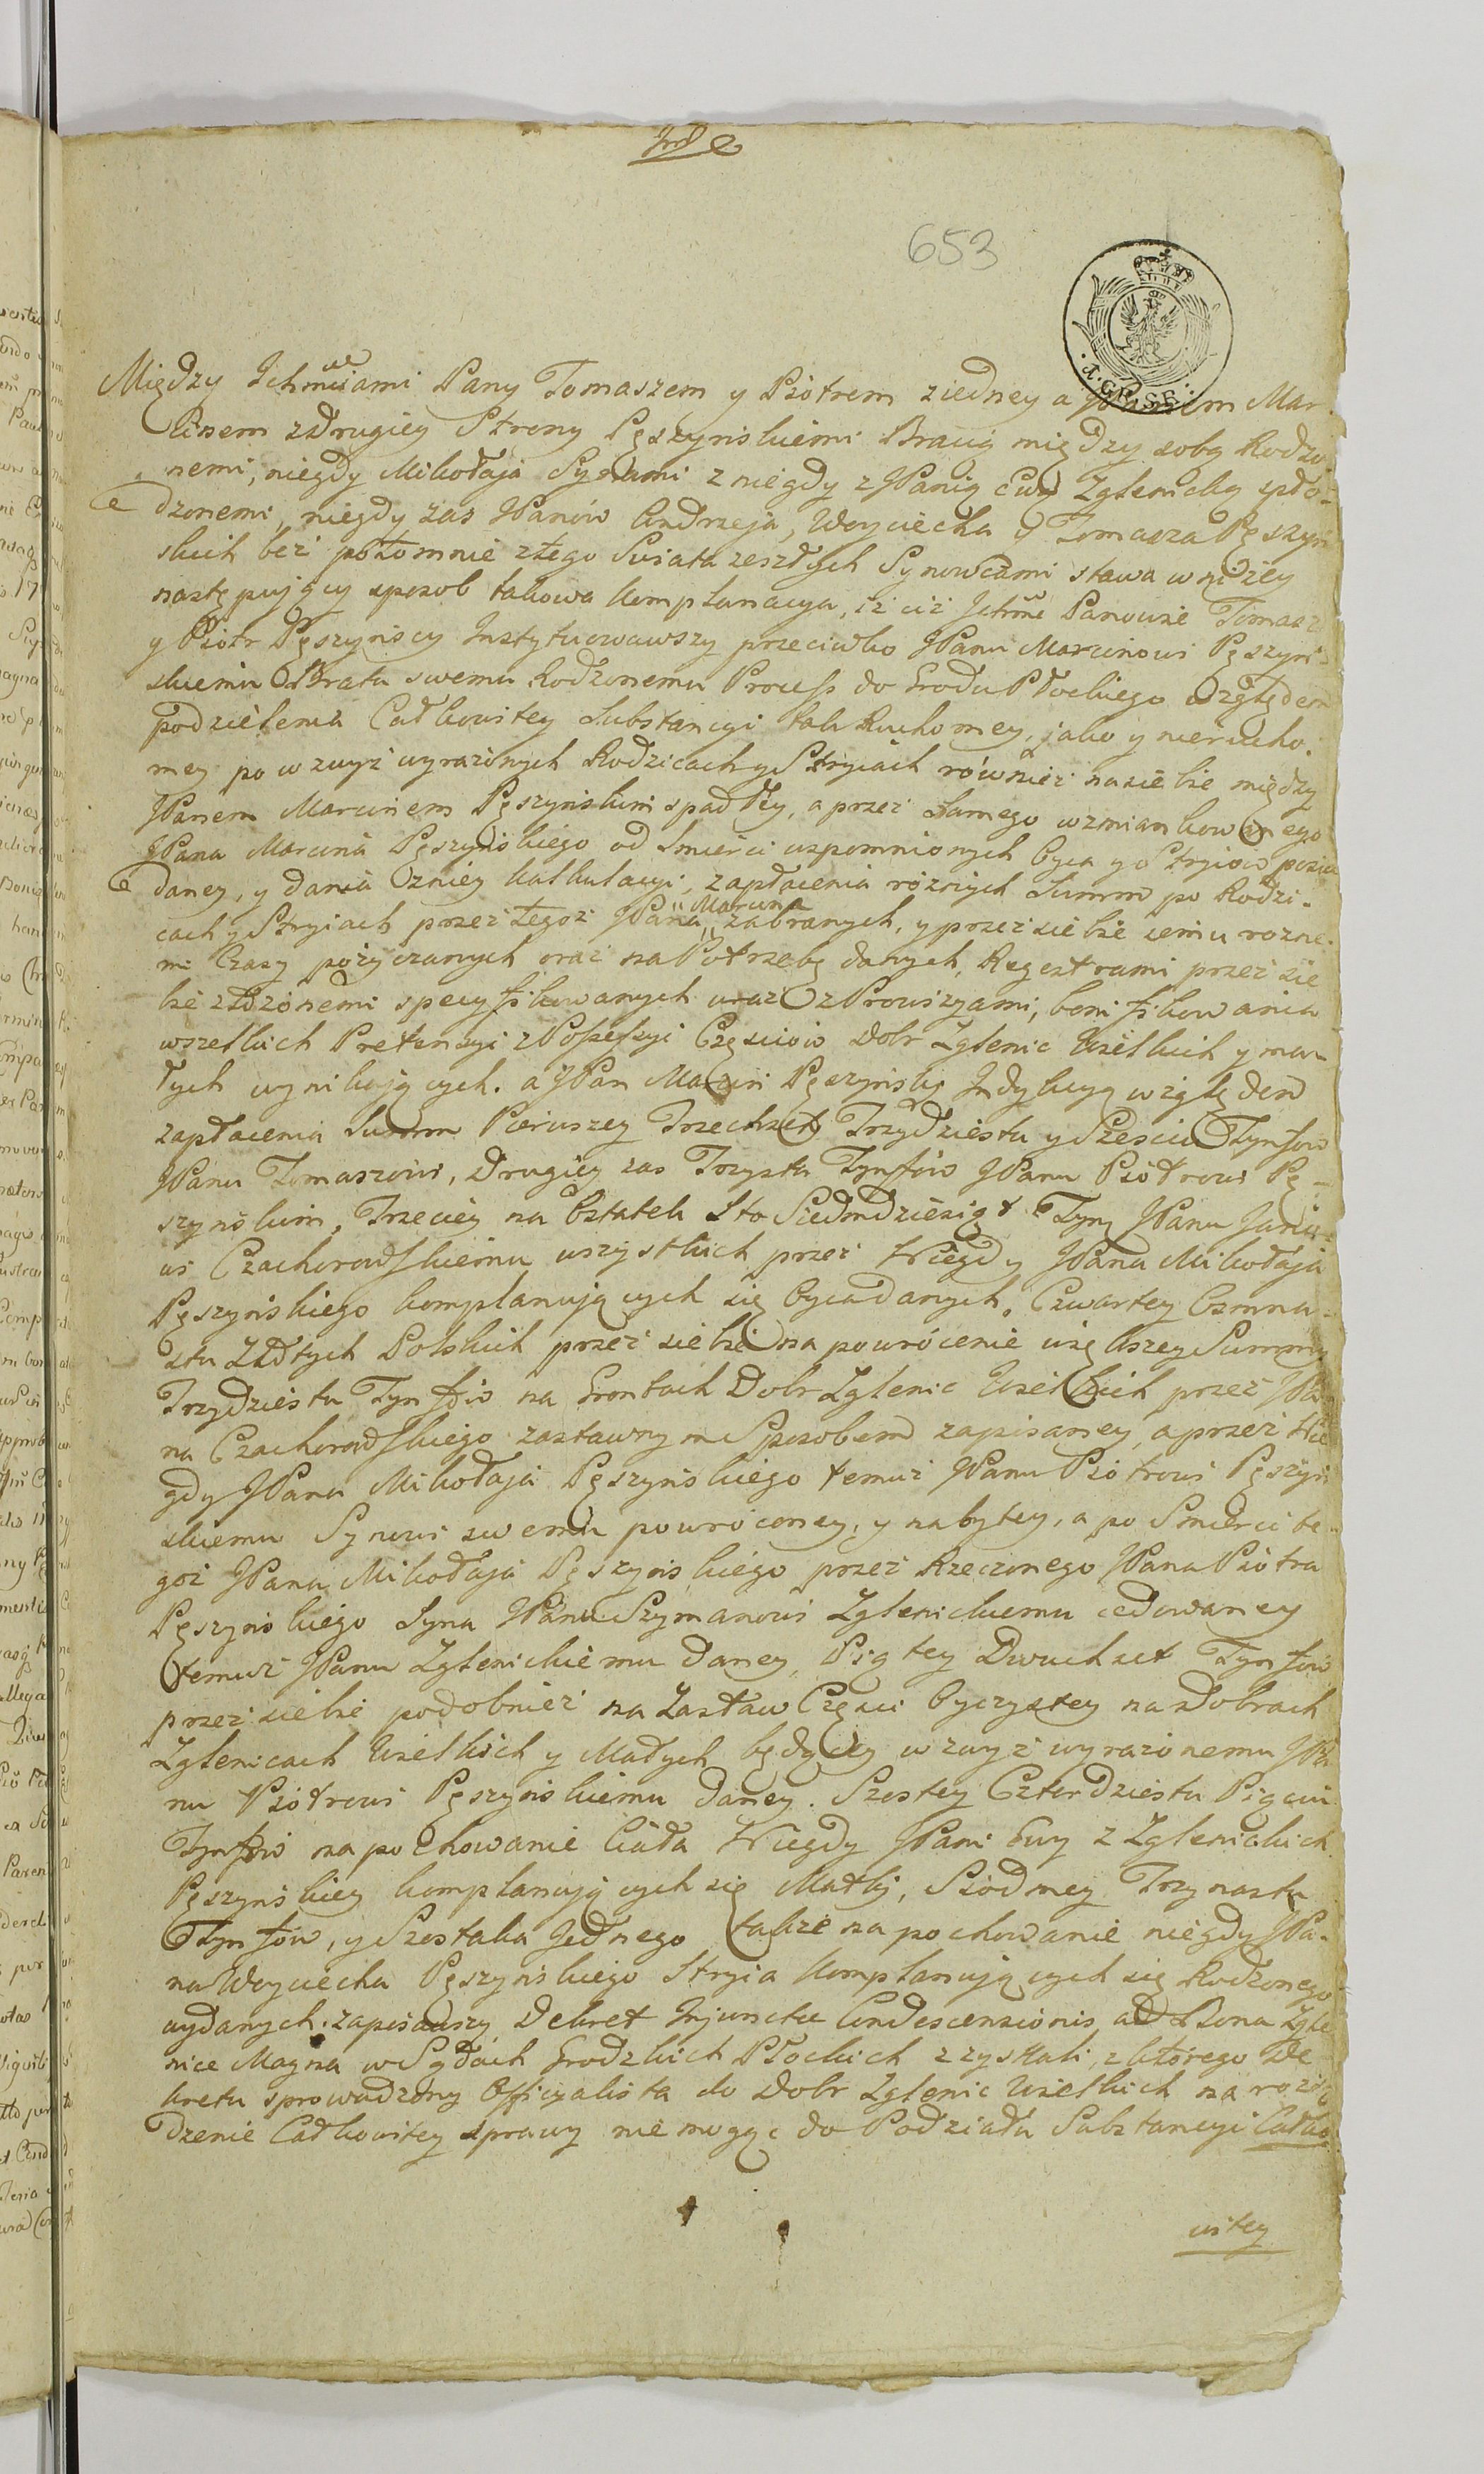 653
1. GR. SR.
Między Ichmciami Pany Tomaszem y Piotrem ziedney a JPanem Mar-
cinem zdrugiey Strony Pęszynskiemi Bracią między sobą Rodzo-
nemi, niegdy Mikołaja Synami z niegdy z JPanią Ewą Zglenicką spło-
dzonemi, niegdy zas JPanów Andrzeja, Woyciecha y Tomasza Pęszyn-
skich bez potomnie ztego Swiata zeszłych Synowcami stawa w niżey
następujący sposob takowa Komplanacya, iż ciż Ichmć Panowie Tomasz
y Piotr Pęszynscy Instytuowawszy przeciwko JPanu Marcinowi Pęszyn-
skiemu Bratu swemu Rodzonemu Process do Grodu Płockiego względem
podzielenia Całkowitey Substancyi tak Ruchomey, jako y nierucho-
mey po wzwyż wyrażonych Rodzicach y Stryiach również na siebie między
JPanem Marcinem Pęszynskim spadłey, a przez Samego wzmiankowanego
JPana Marcina Pęszynskiego od Smierci wspomnionych Oyca y Stryiow posia-
daney, y dania zniey Kalkulacyi, zapłacenia roznych Summ po Rodzi-
cach y Stryiach przez tegoż JPana Marcina zabranych, y przez siebie iemu rozne-
mi Czasy pożyczanych oraz na Potrzebę danych, Regestrami przez sie-
bie złożonemi specyfikowanych wraz z Prowizyami, bonifikowania
wszelkich Pretensyi z Possessyi Częsciow Dobr Zglenic Wielkich y ma-
łych wynikających. a JPan Marcin Pęszynski Indykucyą względem
zapłacenia Summ Pierwszey Trzechset Trzydziestu y Szesciu Tynfow
JPanu Tomaszowi, Drugiey zas Trzysta Tynfow JPanu Piotrowi Pę-
szynskim, Trzeciey na Ostatek Sto Siedmdziesiąt Tynf JPanu Jano-
wi Czachorowskiemu wszystkich przez Niegdy JPana Mikołaja
Pęszynskiego komplanujących się Oyca danych, Czwartey Osmna-
stu Złotych Polskich przez siebie na powrócenie większey Summy
Trzydziestu Tynfów na Gruntach Dobr Zglenic Wielkich przez JPa-
na Czachorowskiego zastawnym Sposobem zapisaney, a przez Nie-
gdy JPana Mikołaja Pęszynskiego temuż JPanu Piotrowi Pęszyn-
skiemu Synowi swemu powróconey, y nabytey, a po Smierci te-
goż JPana Mikołaja Pęszynskiego przez Rzeczonego JPana Piotra
Pęszynskiego Syna JPanu Szymanowi Zglenickiemu cedowaney
temuż JPanu Zglenickiemu daney, Piątey Dwuchset Tynfow
przez siebie podobnież na Zastaw Częsci Oyczystey na Dobrach
Zglenicach Wielkich y Małych będącey wzwyż wyrażonemu JPa-
nu Piotrowi Pęszynskiemu daney. Szostey Czterdziestu Pięciu
Tynfów na pochowanie Ciała Niegdy JPani Ewy z Zglenickich
Pęszynskiey komplanujących się Matki, Siodmey Trzynastu
Tynfów, y Szostaka Jednego także na pochowanie niegdy JPa-
na Woyciecha Pęszynskiego Stryia Komplanujących się Rodzonego
wydanych. zapisawszy Dekret Injunctae Condescensionis ad Bona Zgle-
nice Magna w Sądach Grodzkich Płockich zzyskali, z którego De-
kretu sprowadzony Officyalista do Dobr Zglenic Wielkich na rozsą-
dzenie Całkowitey sprawy nie mogąc do Podziału Substancyi Całko-
witey